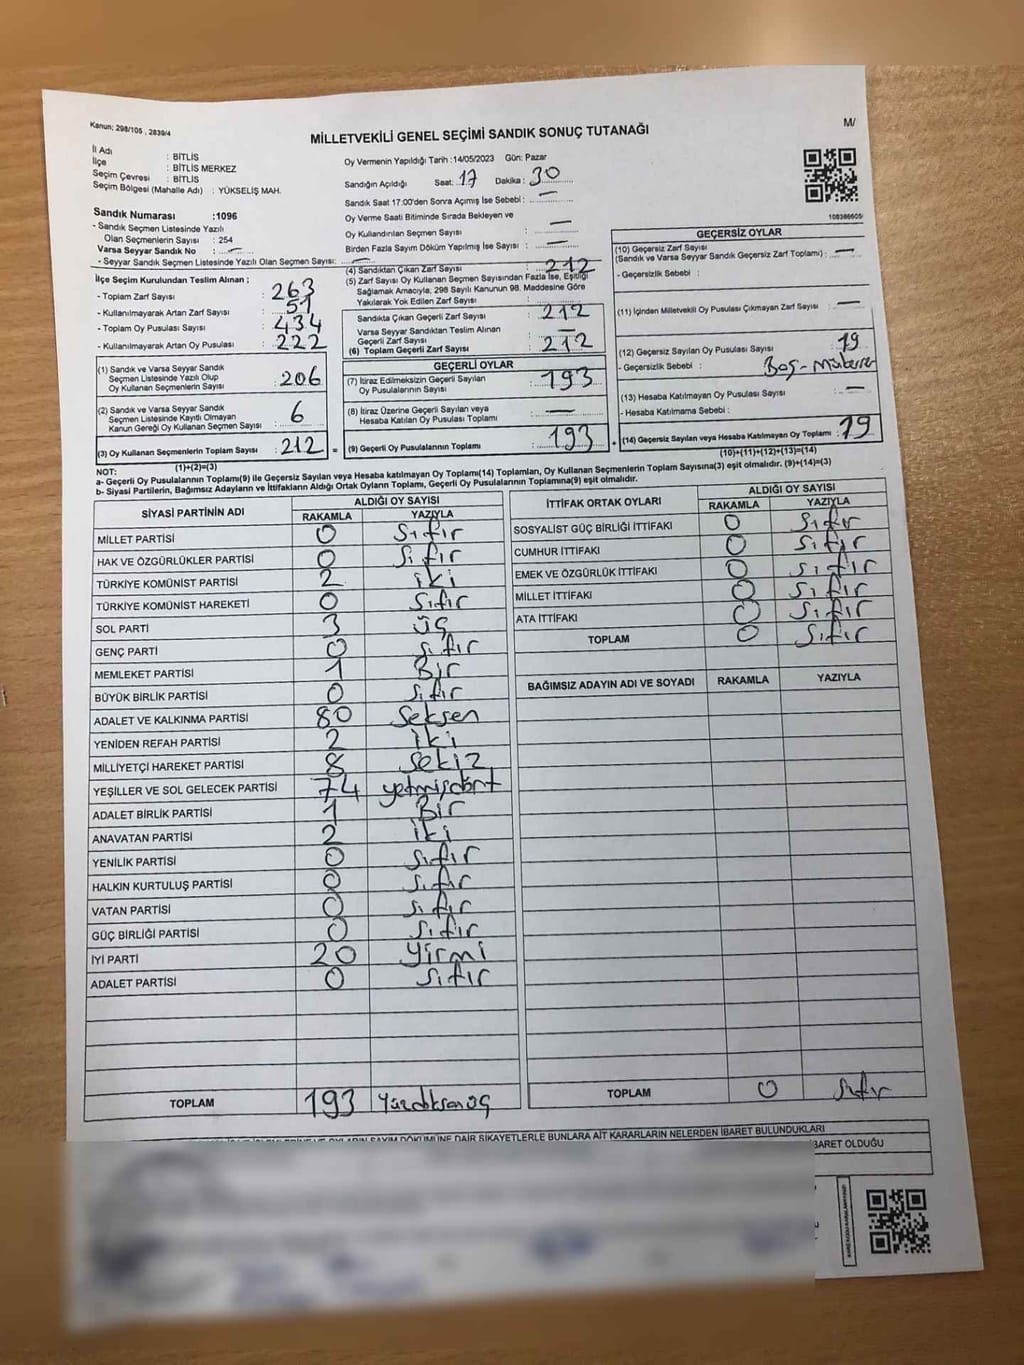 Kanun; 298/105 , 2839/4
MİLLETVEKİLİ GENEL SEÇİMİ SANDIK SONUÇ TUTANAĞI
M/
İl Adı : BİTLİS
İlçe : BİTLİS MERKEZ
Seçim Çevresi : BİTLİS
Seçim Bölgesi (Mahalle Adı) : YÜKSELİŞ MAH.
Sandık Numarası :1096
- Sandık Seçmen Listesinde Yazılı
Olan Seçmenlerin Sayısı : 254
Varsa Seyyar Sandık No : —
- Seyyar Sandık Seçmen Listesinde Yazılı Olan Seçmen Sayısı: —
Oy Vermenin Yapıldığı Tarih :14/05/2023 Gün: Pazar
Sandığın Açıldığı Saat: 17 Dakika : 30
Sandık Saat 17:00'den Sonra Açımış İse Sebebi : —
Oy Verme Saati Bitiminde Sırada Bekleyen ve
Oy Kullandırılan Seçmen Sayısı : —
Birden Fazla Sayım Döküm Yapılmış İse Sayısı : —
İlçe Seçim Kurulundan Teslim Alınan ;
- Toplam Zarf Sayısı : 263
- Kullanılmayarak Artan Zarf Sayısı : 51
- Toplam Oy Pusulası Sayısı : 434
- Kullanılmayarak Artan Oy Pusulası : 222
(1) Sandık ve Varsa Seyyar Sandık
Seçmen Listesinde Yazılı Olup
Oy Kullanan Seçmenlerin Sayısı : 206
(2) Sandık ve Varsa Seyyar Sandık
Seçmen Listesinde Kayıtlı Olmayan
Kanun Gereği Oy Kullanan Seçmen Sayısı : 6
(3) Oy Kullanan Seçmenlerin Toplam Sayısı : 212
(1)+(2)=(3)
(4) Sandıktan Çıkan Zarf Sayısı : 212
(5) Zarf Sayısı Oy Kullanan Seçmen Sayısından Fazla İse, Eşitliği
Sağlamak Amacıyla; 298 Sayılı Kanunun 98. Maddesine Göre
Yakılarak Yok Edilen Zarf Sayısı : —
Sandıkta Çıkan Geçerli Zarf Sayısı : 212
Varsa Seyyar Sandıktan Teslim Alınan
Geçerli Zarf Sayısı : —
(6) Toplam Geçerli Zarf Sayısı : 212
GEÇERLİ OYLAR
(7) İtiraz Edilmeksizin Geçerli Sayılan
Oy Pusulalarının Sayısı : 193
(8) İtiraz Üzerine Geçerli Sayılan veya
Hesaba Katılan Oy Pusulası Toplamı : —
(9) Geçerli Oy Pusulalarının Toplamı : 193
GEÇERSİZ OYLAR
(10) Geçersiz Zarf Sayısı
(Sandık ve Varsa Seyyar Sandık Geçersiz Zarf Toplamı) : —
- Geçersizlik Sebebi :
(11) İçinden Milletvekili Oy Pusulası Çıkmayan Zarf Sayısı : —
(12) Geçersiz Sayılan Oy Pusulası Sayısı : 19
- Geçersizlik Sebebi : Boş-
(13) Hesaba Katılmayan Oy Pusulası Sayısı : —
- Hesaba Katılmama Sebebi :
(14) Geçersiz Sayılan veya Hesaba Katılmayan Oy Toplamı : 19
(10)+(11)+(12)+(13)=(14)
NOT:
a- Geçerli Oy Pusulalarının Toplamı(9) ile Geçersiz Sayılan veya Hesaba katılmayan Oy Toplamı(14) Toplamları, Oy Kullanan Seçmenlerin Toplam Sayısına(3) eşit olmalıdır. (9)+(14)=(3)
b- Siyasi Partilerin, Bağımsız Adayların ve İttifakların Aldığı Ortak Oyların Toplamı, Geçerli Oy Pusulalarının Toplamına(9) eşit olmalıdır.
SİYASİ PARTİNİN ADI ALDIĞI OY SAYISI
RAKAMLA YAZIYLA
MİLLET PARTİSİ 0 Sıfır
HAK VE ÖZGÜRLÜKLER PARTİSİ 0 Sıfır
TÜRKİYE KOMÜNİST PARTİSİ 2 iki
TÜRKİYE KOMÜNİST HAREKETİ 0 Sıfır
SOL PARTİ 3 üç
GENÇ PARTİ 0 Sıfır
MEMLEKET PARTİSİ 1 Bir
BÜYÜK BİRLİK PARTİSİ 0 Sıfır
ADALET VE KALKINMA PARTİSİ 80 Seksen
YENİDEN REFAH PARTİSİ 2 iki
MİLLİYETÇİ HAREKET PARTİSİ 8 Sekiz
YEŞİLLER VE SOL GELECEK PARTİSİ 74 yetmişdört
ADALET BİRLİK PARTİSİ 1 Bir
ANAVATAN PARTİSİ 2 iki
YENİLİK PARTİSİ 0 Sıfır
HALKIN KURTULUŞ PARTİSİ 0 Sıfır
VATAN PARTİSİ 0 Sıfır
GÜÇ BİRLİĞİ PARTİSİ 0 Sıfır
İYİ PARTİ 20 Yirmi
ADALET PARTİSİ 0 Sıfır
TOPLAM 193
İTTİFAK ORTAK OYLARI ALDIĞI OY SAYISI
RAKAMLA YAZIYLA
SOSYALİST GÜÇ BİRLİĞİ İTTİFAKI 0 Sıfır
CUMHUR İTTİFAKI 0 Sıfır
EMEK VE ÖZGÜRLÜK İTTİFAKI 0 Sıfır
MİLLET İTTİFAKI 0 Sıfır
ATA İTTİFAKI 0 Sıfır
TOPLAM 0 Sıfır
BAĞIMSIZ ADAYIN ADI VE SOYADI RAKAMLA YAZIYLA
TOPLAM 0 Sıfır
SAYIM DÖKÜMÜNE DAİR ŞİKAYETLERLE BUNLARA AİT KARARLARIN NELERDEN İBARET BULUNDUKLARI
İBARET OLDUĞU